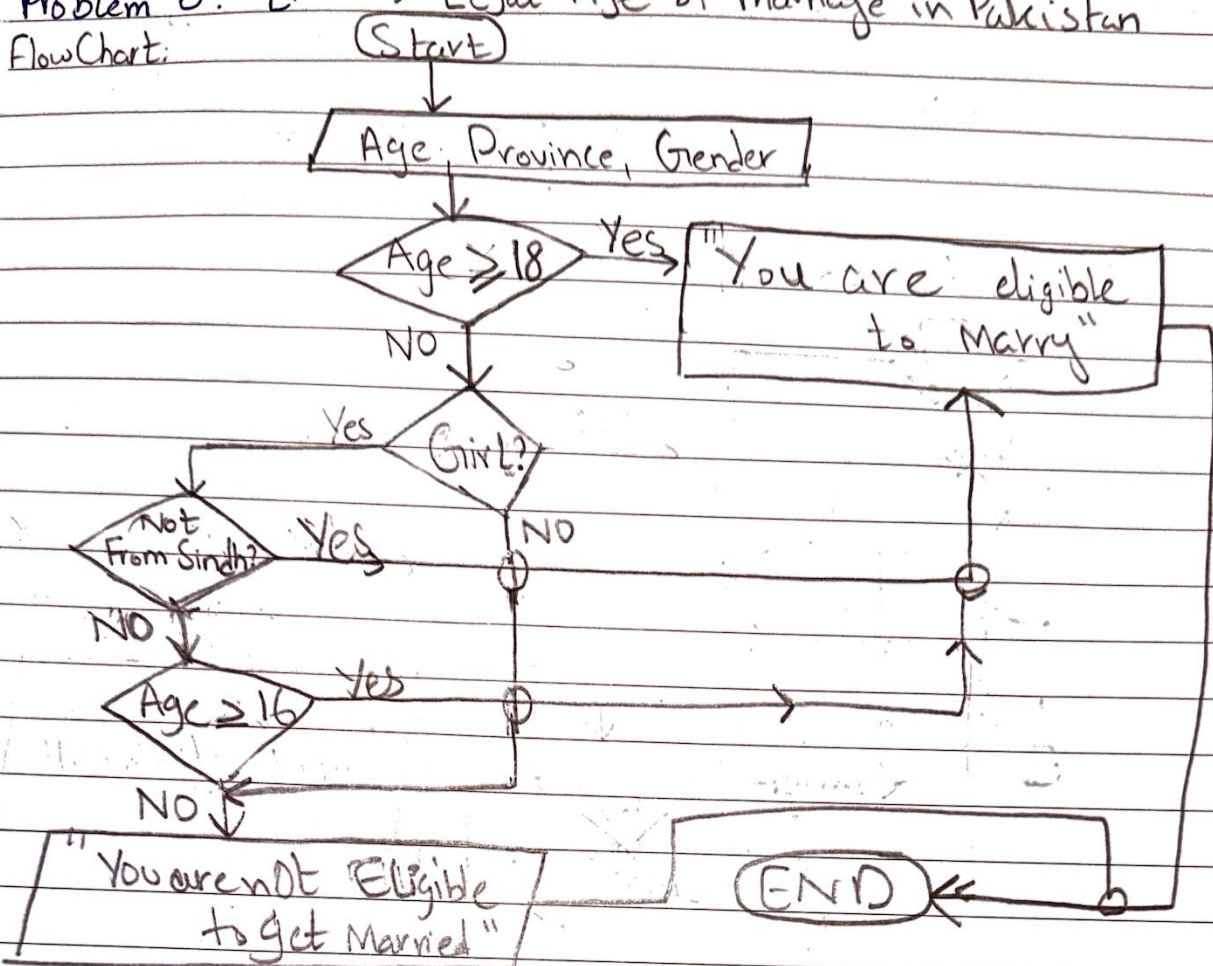 Problem
Age of Marriage in Pakistan
FlowChart:
Start
Age, Province, Gender
Age ≥ 18
Yes
"You are eligible
to Marry"
NO
Girl?
Yes
NO
Not
From Sindh?
Yes
NO
Age ≥ 16
Yes
NO
"You are not Eligible
to get Married"
END